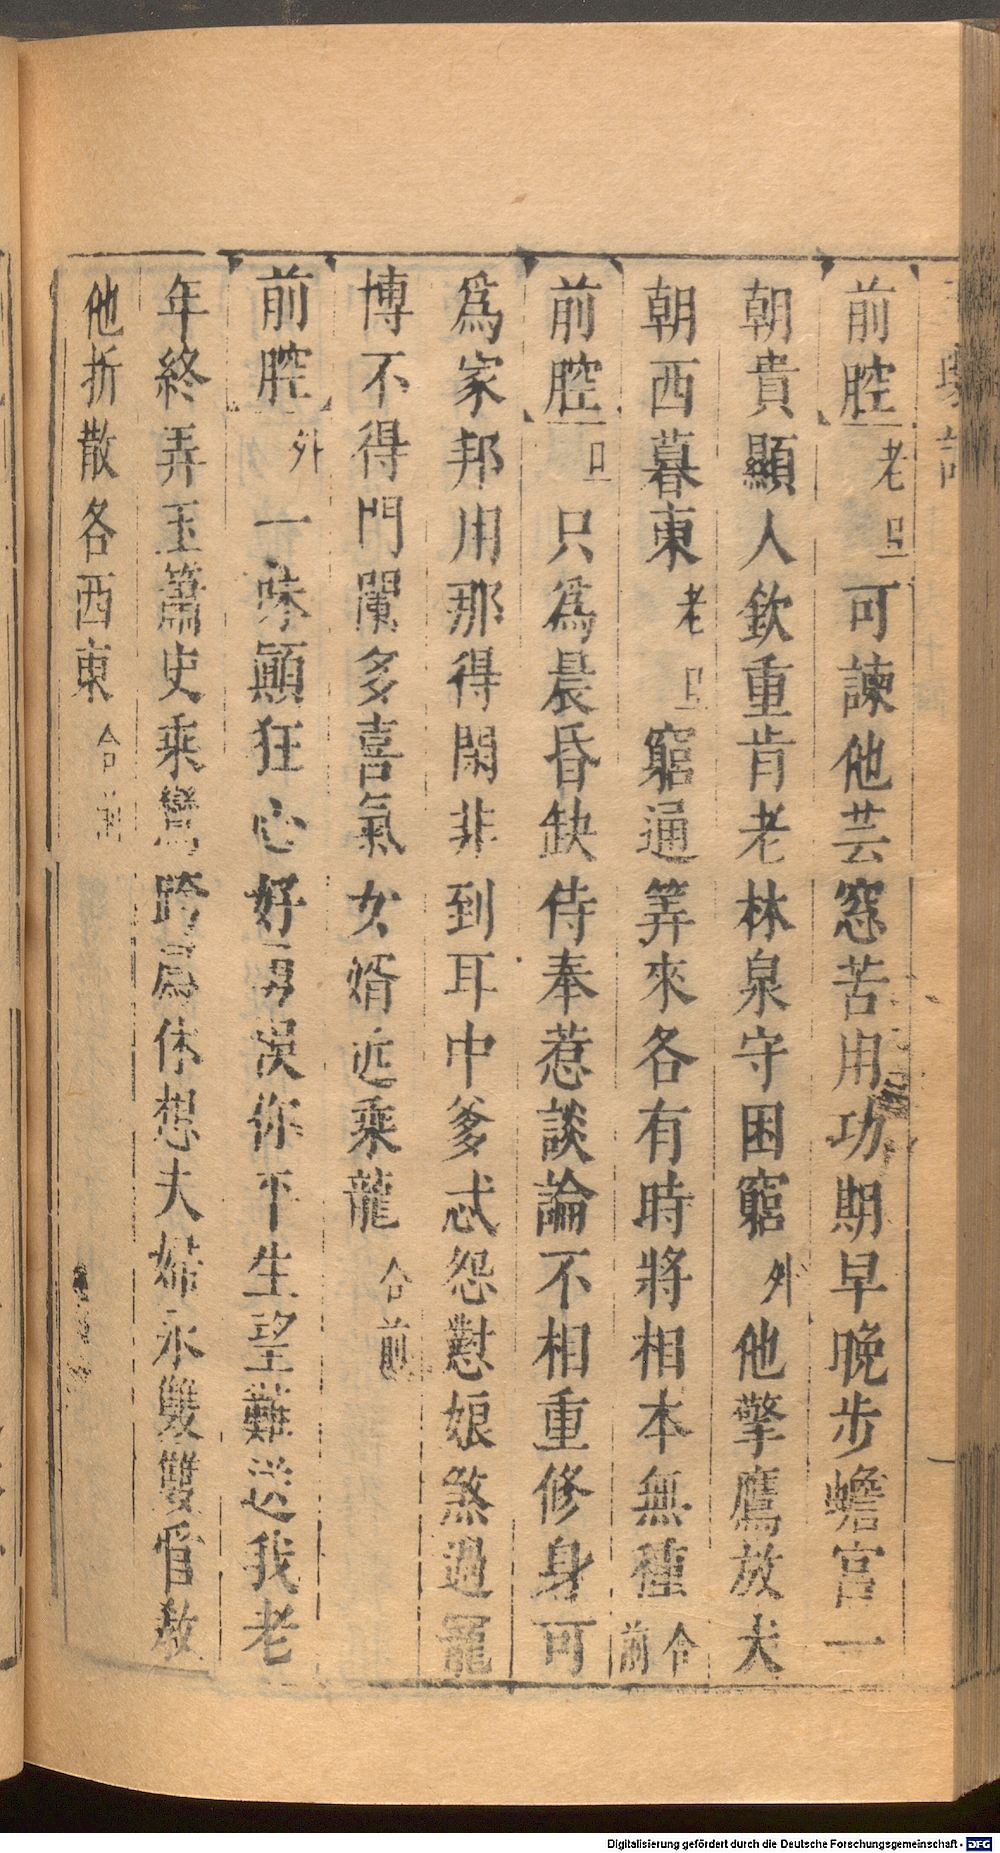 前腔老旦可諫他芸窓苦用功期早晚步蟾宮一
朝貴顯人欽重肯老林泉守困窮外他擎鷹放犬
朝西暮東老旦窮通筭來各有時將相本無種合前
前腔旦只爲晨昏缺侍奉惹談論不相重修身可
爲家邦用那得閑非到耳中爹忒怨懟娘煞過寵
博不得門闌多喜氣女婿近乘龍合前
前腔外一味顚狂心好男漢你下生望難送我老
年終弄玉簫史乘鸞跨鳳休想夫婦永雙雙管教
他折散各西東合前
Digitalisierung gefördert durch die Deutsche Forschungsgemeinschaft - DFG